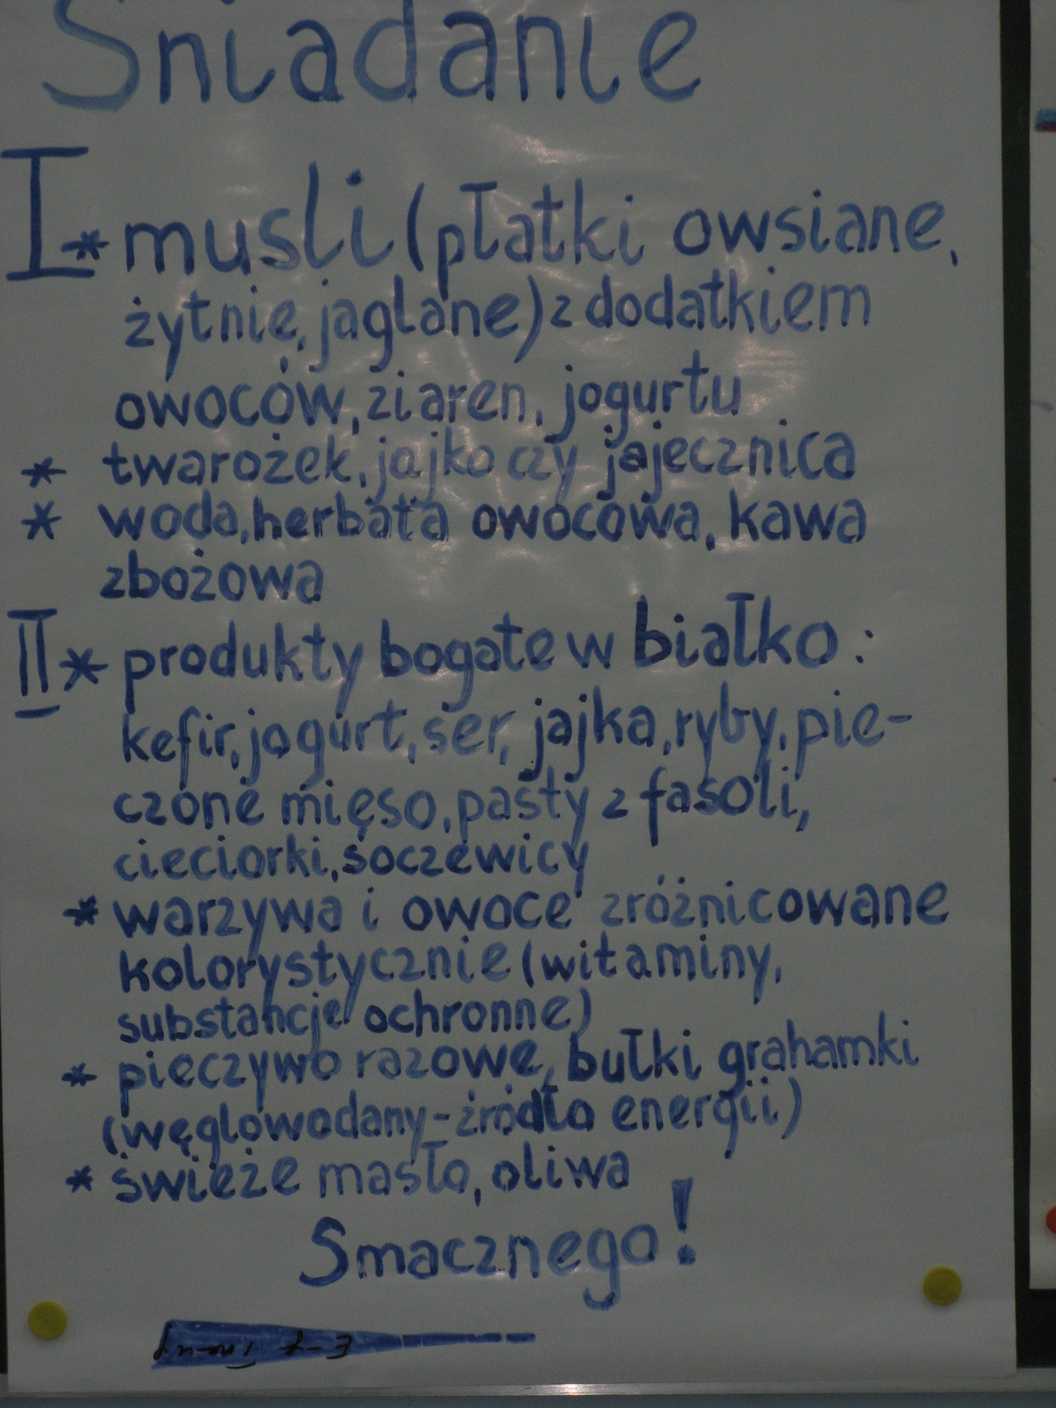 Śniadanie
I * musli (płatki owsiane,
żytnie, jaglane) z dodatkiem
owoców, ziaren, jogurtu
* twarożek, jajko czy jajecznica
* woda, herbata owocowa, kawa
zbożowa
II * produkty bogate w białko:
kefir, jogurt, ser, jajka, ryby, pie-
czone mięso, pasty z fasoli,
cieciorki, soczewicy
* warzywa i owoce zróżnicowane
kolorystycznie (witaminy,
substancje ochronne)
* pieczywo razowe, bułki grahamki
(węglowodany - źródło energii)
* świeże masło, oliwa
Smacznego!